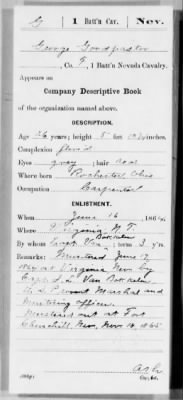 G | 1 Batt'n Cav. | Nev.
George Goodpaster
Co. F, 1 Batt'n Nevada Cavalry.
Appears on
Company Descriptive Book
of the organization named above.
DESCRIPTION.
Age 26 years; height 5 feet inches
Complexion florid
Eyes gray; hair
Where born Rochester Ohio
Occupation Carpenter
ENLISTMENT.
When June 16, 1864
Where Virginia N.T.
By whom Capt Van; term 3 y'rs.
Remarks: Mustered June 17
1864 at Virginia Nev by
Capt J. L. Van Bokkelen
U.S. Provost Marshal and
Mustering officer.
Mustered out at Fort
Churchill Nev, Nov 18, 1865
Copyist.